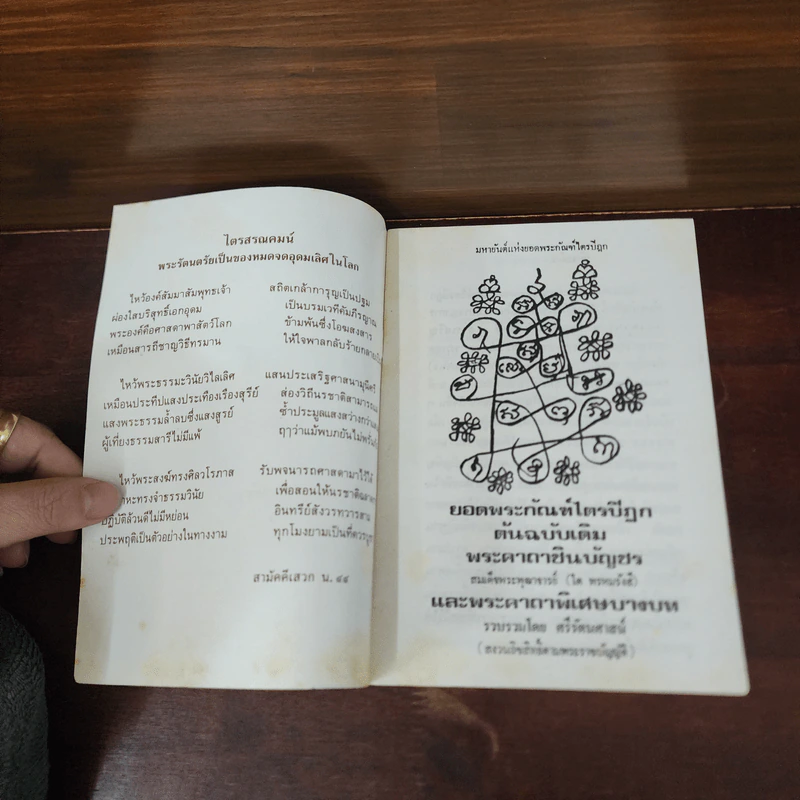 ไตรสรณคมน์
พระรัตนตรัยเป็นของหมดจดอุดมเลิศในโลก
ไหว้องค์สัมมาสัมพุทธเจ้า สถิตเกล้าการุญเป็นปฐม
ผ่องใสบริสุทธิ์เอกอุดม เป็นบรมเวทีคัมภีรญาณ
พระองค์คือศาสดาพาสัตว์โลก ข้ามพ้นซึ่งโอฆสงสาร
เหมือนสารถีชาญวิธีทรมาน ให้ใจพาลกลับร้ายกลาย
ไหว้พระธรรมะวินัยวิไลเลิศ แสนประเสริฐศาสนามุนีศรี
เหมือนประทีปแสงประเทืองเรืองสุรีย์ ส่องวิถีนรชาติสามารถ
แสงพระธรรมล้ำลบซึ่งแสงสูรย์ ซ้ำประมูลแสงสว่างกว่า
ผู้เที่ยงธรรมสารีไม่มีแพ้ ฤๅว่าแม้พบภยันไม่พรั่น
ไหว้พระสงฆ์ทรงศีลวโรภาส รับพจนารถศาสดามาไว้ได้
หะทรงจำธรรมวินัย เพื่อสอนให้นรชาติ
ปฏิบัติล้วนดีไม่มีหย่อน อินทรีย์สังวรทวารสาม
ประพฤติเป็นตัวอย่างในทางงาม ทุกโมงยามเป็นที่ควร
สามัคคีเสวก น. ๔๔
มหายันต์แห่งยอดพระกัณฑ์ไตรปิฎก
ยอดพระกัณฑ์ไตรปิฎก
ต้นฉบับเดิม
พระคาถาชินบัญชร
สมเด็จพระพุฒาจารย์ (โต พรหมรังสี)
และพระคาถาพิเศษบางบท
รวบรวมโดย ศรีรัตนศาสน์
(สงวนลิขสิทธิ์ตามพระราชบัญญัติ)